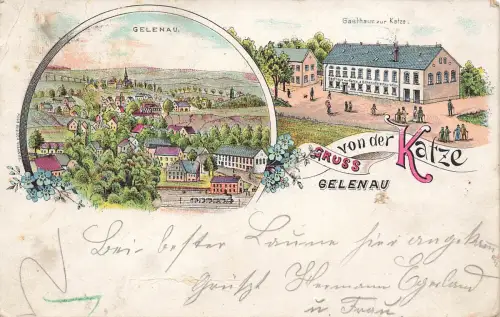 GELENAU.
Gasthaus zur Katze.
GRUSS von der Katze
GELENAU
Bei bester Laune hier angekom
Grüßt Hermann
u. Frau